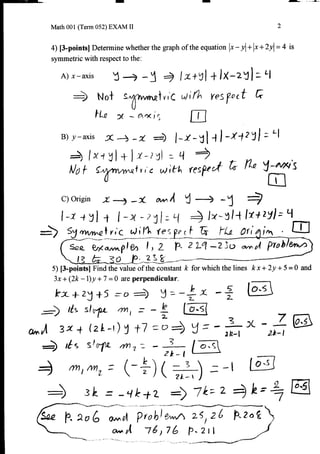 Math 001 (Term 052) EXAM II 2
4) [3-points] Determine whether the graph of the equation |x − y| + |x + 2y| = 4 is
symmetric with respect to the:
A) x – axis y → −y ⇒ |x+y| + |x−2y| = 4
⇒ Not symmetric with respect to
the x – axis 1
B) y – axis x → −x ⇒ |−x−y| + |−x+2y| = 4
⇒ |x+y| + |x−2y| = 4 ⇒
Not symmetric with respect to the y-axis
1
C) Origin x → −x and y → −y ⇒
|−x+y| + |−x−2y| = 4 ⇒ |x−y| + |x+2y| = 4
⇒ symmetric with respect to the origin. 1
See examples 1, 2 P. 229–230 and problems
13 & 30 P. 238
5) [3-points] Find the value of the constant k for which the lines kx + 2y + 5 = 0 and
3x + (2k − 1)y + 7 = 0 are perpendicular.
kx + 2y + 5 = 0 ⇒ y = −k/2 x − 5/2 0.5
⇒ its slope m₁ = −k/2 0.5
and 3x + (2k−1)y + 7 = 0 ⇒ y = −3/2k−1 x − 7/2k−1 0.5
⇒ its slope m₂ = −3/2k−1 0.5
⇒ m₁ m₂ = (−k/2)(−3/2k−1) = −1 0.5
⇒ 3k = −4k + 2 ⇒ 7k = 2 ⇒ k = 2/7 0.5
See P. 206 and problems 25, 26 P. 208
and 76, 76 P. 211